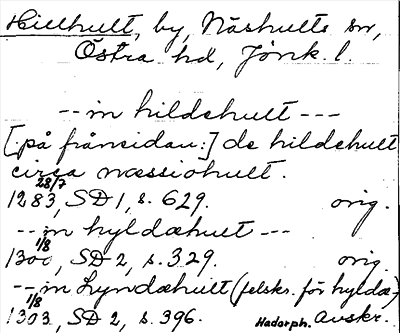 Hillhult, by, Näshults sn,
Östra hd, Jönk. l.
-- in hildehult ---
[på frånsidan:] de hildehult
circa næssiohult.
28/7
1283, SD 1, s. 629. orig.
-- in hyldæhult ---
1/8
1300, SD 2, s. 329. orig.
-- in Lyndæhult (felskr. för hyldæ-)
1/8
1303, SD 2, s. 396. Hadorph. avskr.